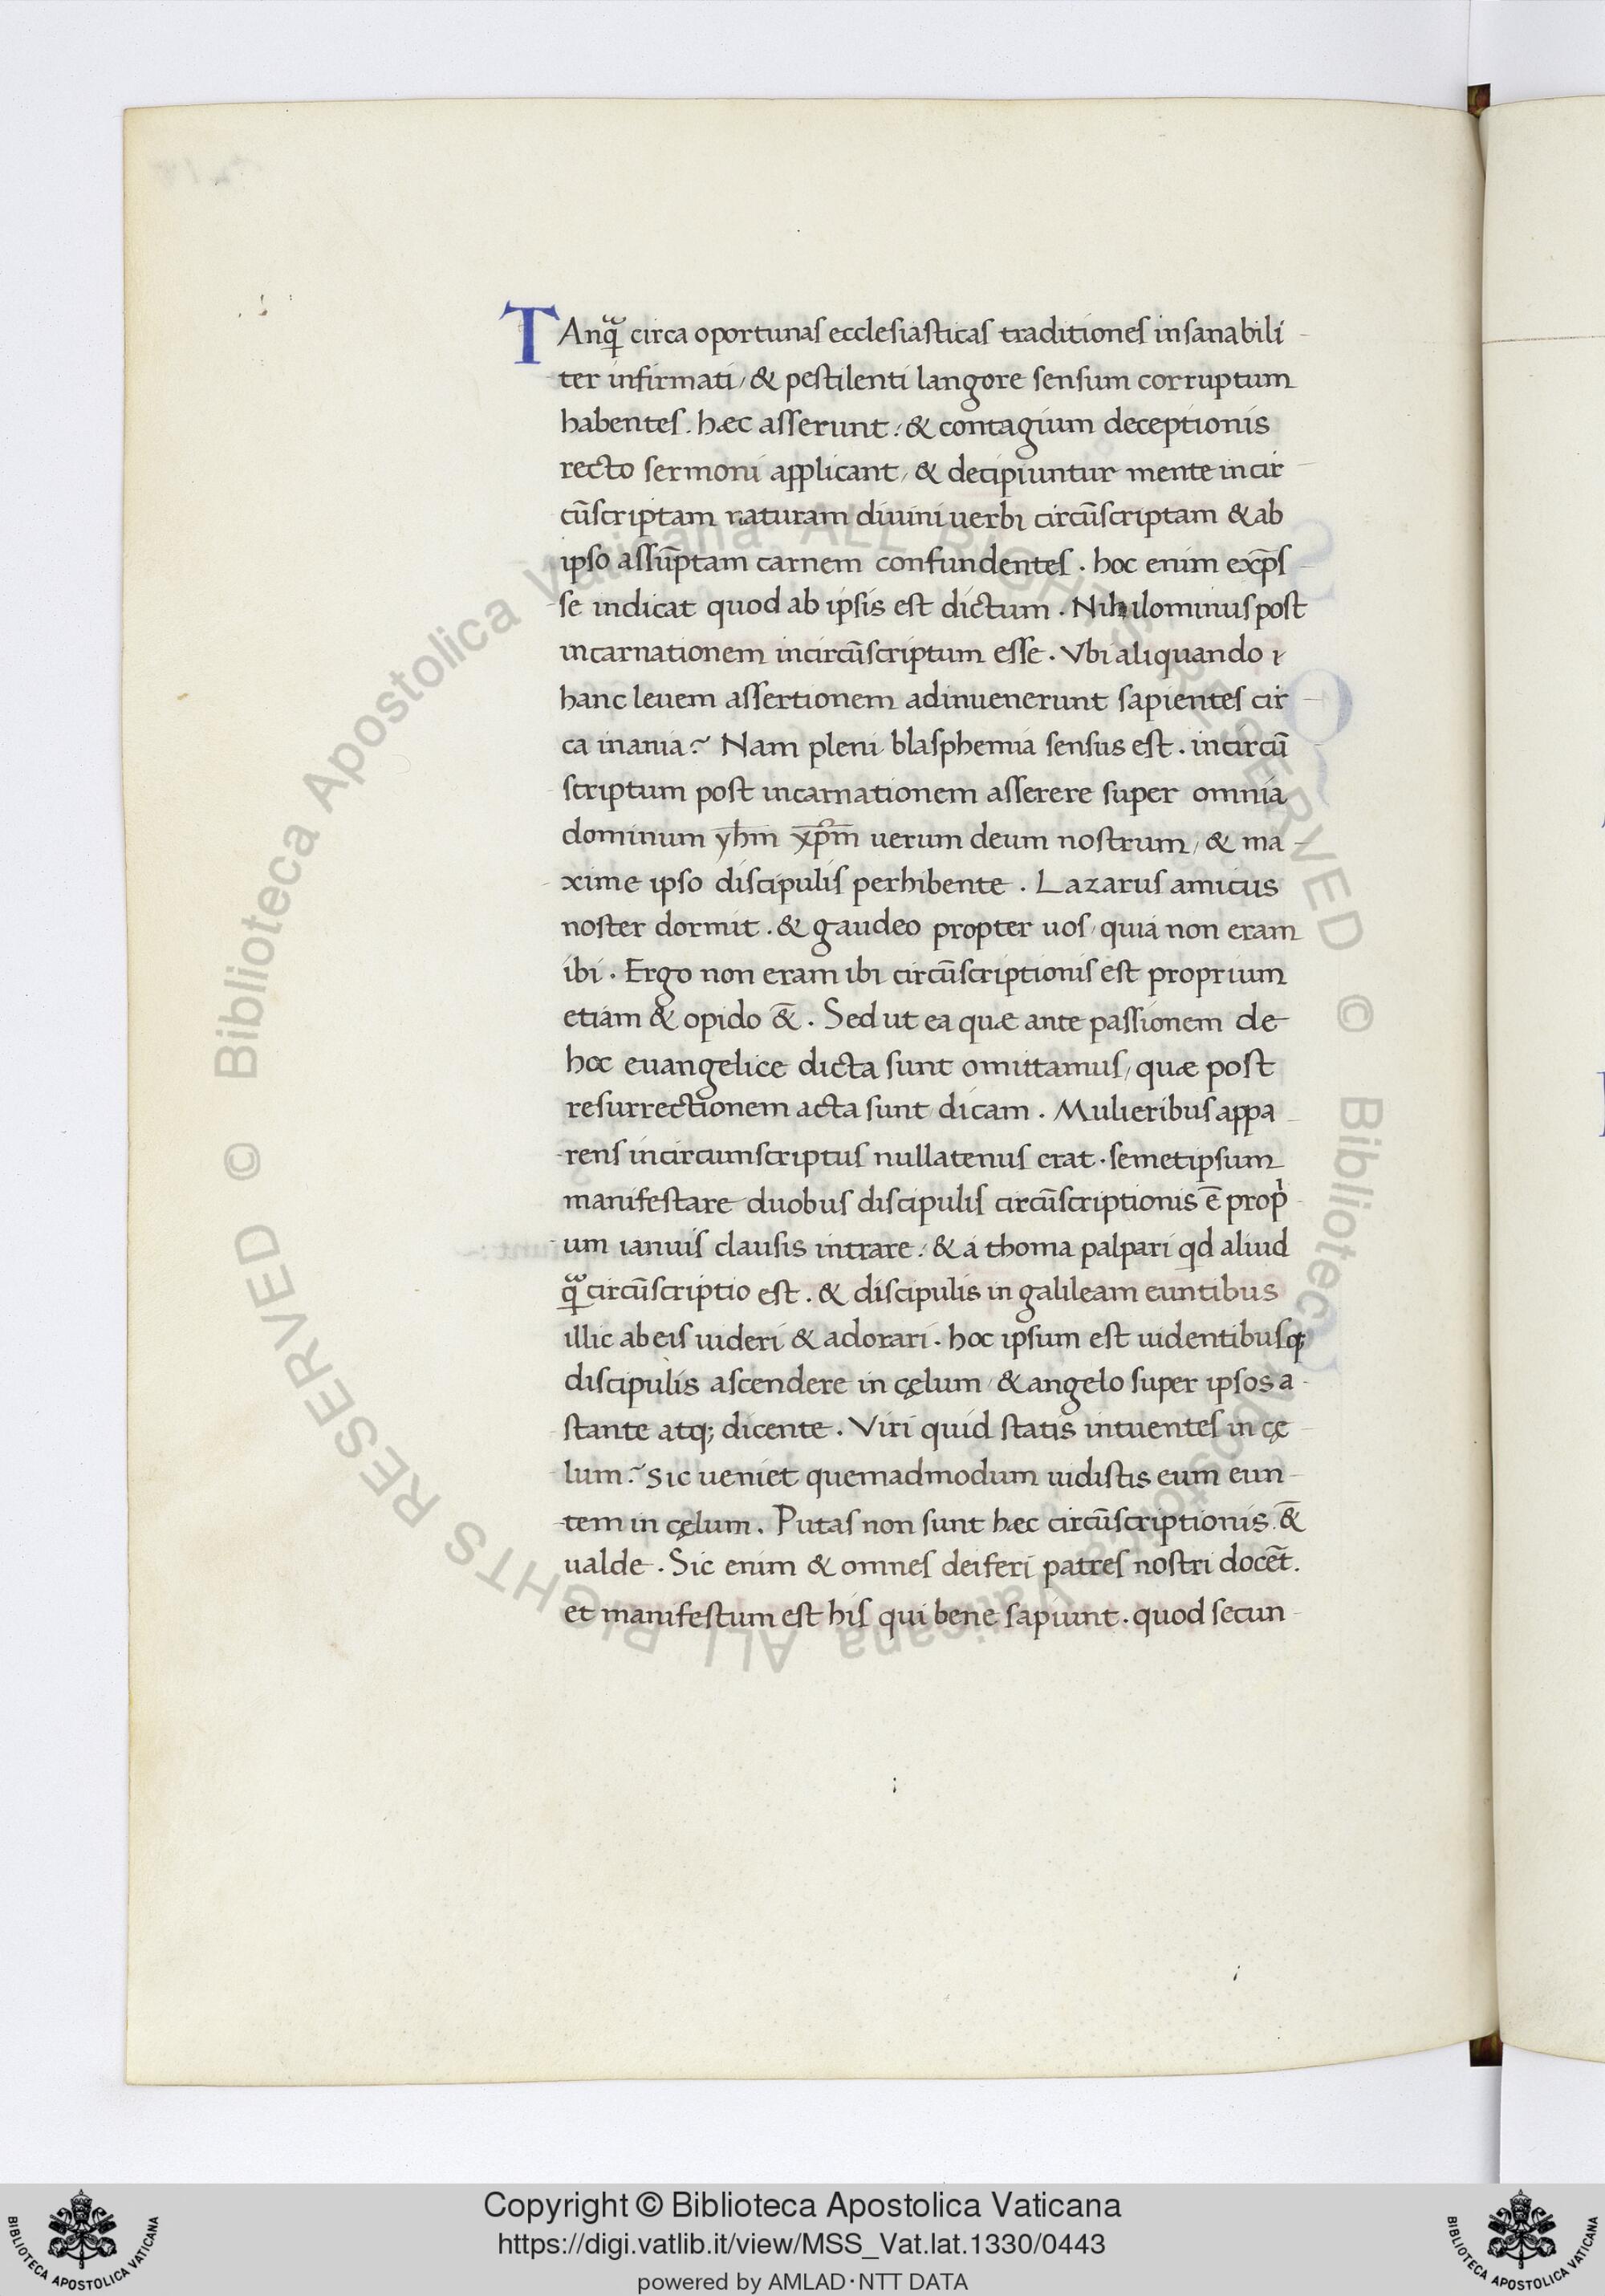 TAnqᷓ circa oportunas ecclesiasticas traditiones insanabili
ter infirmati, & pestilenti langore sensum corruptum
habentes. hæc asserunt: & contagium deceptionis
recto sermoni applicant, & decipiuntur mente incir
cūscriptam naturam diuini uerbi circūscriptam & ab
ipso assūptam carnem confundentes. hoc enim exp̄s
se indicat quod ab ipsis est dictum. Nihilominus post
incarnationem incircūscriptum esse. Vbi aliquando i
hanc leuem assertionem adinuenerunt sapientes cir
ca inania? Nam pleni blasphemia sensus est. incircū
scriptum post incarnationem asserere super omnia
dominum yhm̄ xp̄m uerum deum nostrum, & ma
xime ipso discipulis perhibente. Lazarus amicus
noster dormit. & gaudeo propter uos, quia non eram
ibi. Ergo non eram ibi circūscriptionis est proprium
etiam & opido &̄. Sed ut ea quæ ante passionem de
hoc euangelice dicta sunt omittamus, quæ post
resurrectionem acta sunt dicam. Mulieribus appa
rens incircumscriptus nullatenus erat. semetipsum
manifestare duobus discipulis circūscriptionis ē propͥ
um ianuis clausis intrare: & a thoma palpari qd aliud
qᷓ circūscriptio est. & discipulis in galileam euntibus
illic ab eis uideri & adorari. hoc ipsum est uidentibusq;
discipulis ascendere in cęlum, & angelo super ipsos a
stante atq; dicente. Viri quid statis intuentes in cę
lum? Sic ueniet quemadmodum uidistis eum eun
tem in cęlum. Putas non sunt hæc circūscriptionis. &̄
ualde. Sic enim & omnes deiferi patres nostri docēt.
et manifestum est his qui bene sapiunt. quod secun
© Biblioteca Apostolica Vaticana ALL RIGHTS RESERVED
© Biblioteca Apostolica Vaticana ALL RIGHTS RESERVED
Copyright © Biblioteca Apostolica Vaticana
https://digi.vatlib.it/view/MSS_Vat.lat.1330/0443
powered by AMLAD·NTT DATA
BIBLIOTECA APOSTOLICA VATICANA
BIBLIOTECA APOSTOLICA VATICANA